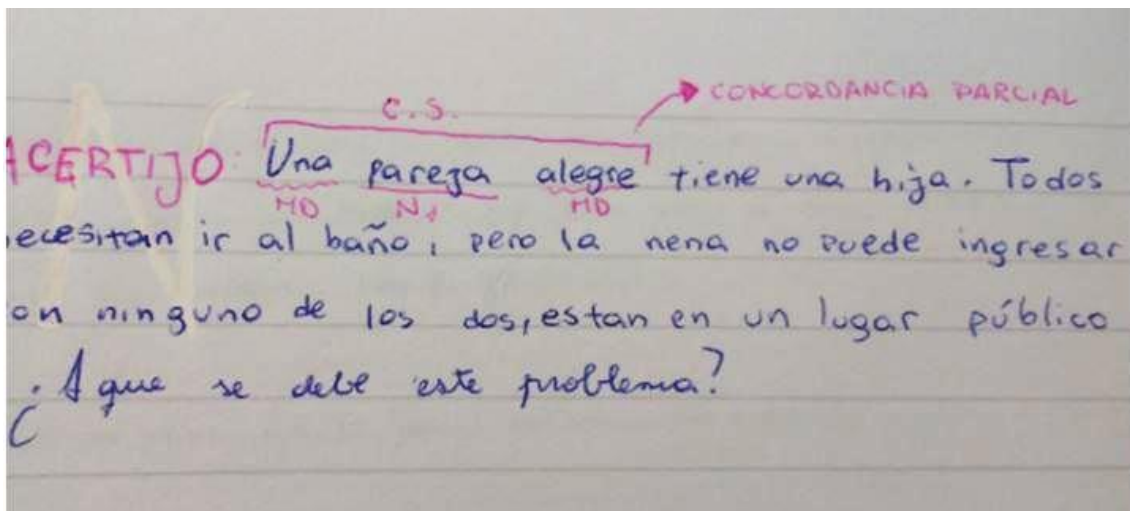 C.S. → CONCORDANCIA PARCIAL
ACERTIJO: Una pareja alegre tiene una hija. Todos
MD N↓ MD
ecesitan ir al baño, pero la nena no puede ingresar
on ninguno de los dos, estan en un lugar público
¿A que se debe este problema?